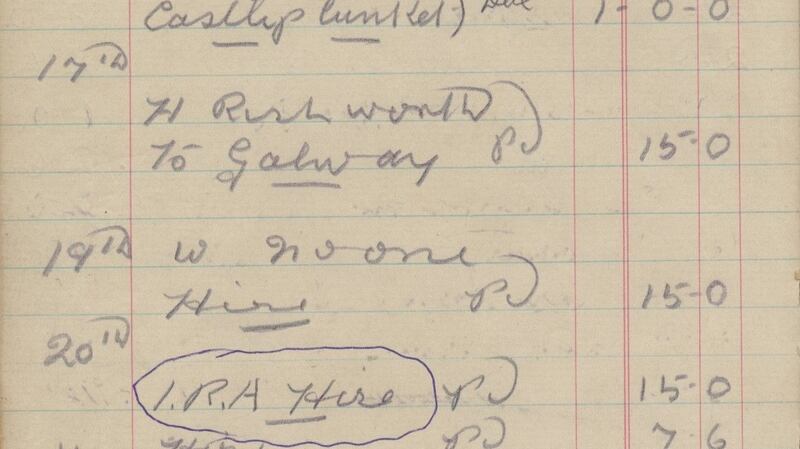 Castleplunket) Due 1-0-0
17TH
H Rushworth
To Galway Pd 15-0
19TH W Noone
Hire Pd 15-0
20TH
I.R.A Hire Pd 15-0
Pd 7-6